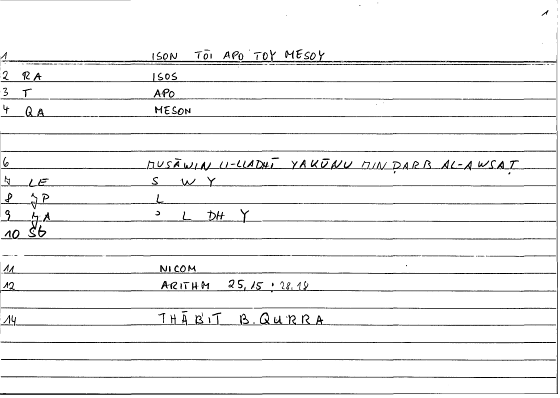 1
1 ISON TŌI APO TOY MESOY
2 RA ISOS
3 T APO
4 QA MESON
6 MUSĀWIN LI-LLADHĪ YAKŪNU MIN ḌARB AL-AWSAṬ
7 LE S W Y
8 JP L
9 JA ʾ L DH Y
10 SG
11 NICOM
12 ARITHM 25,15 : 28.18
14 THĀBIT B. QURRA